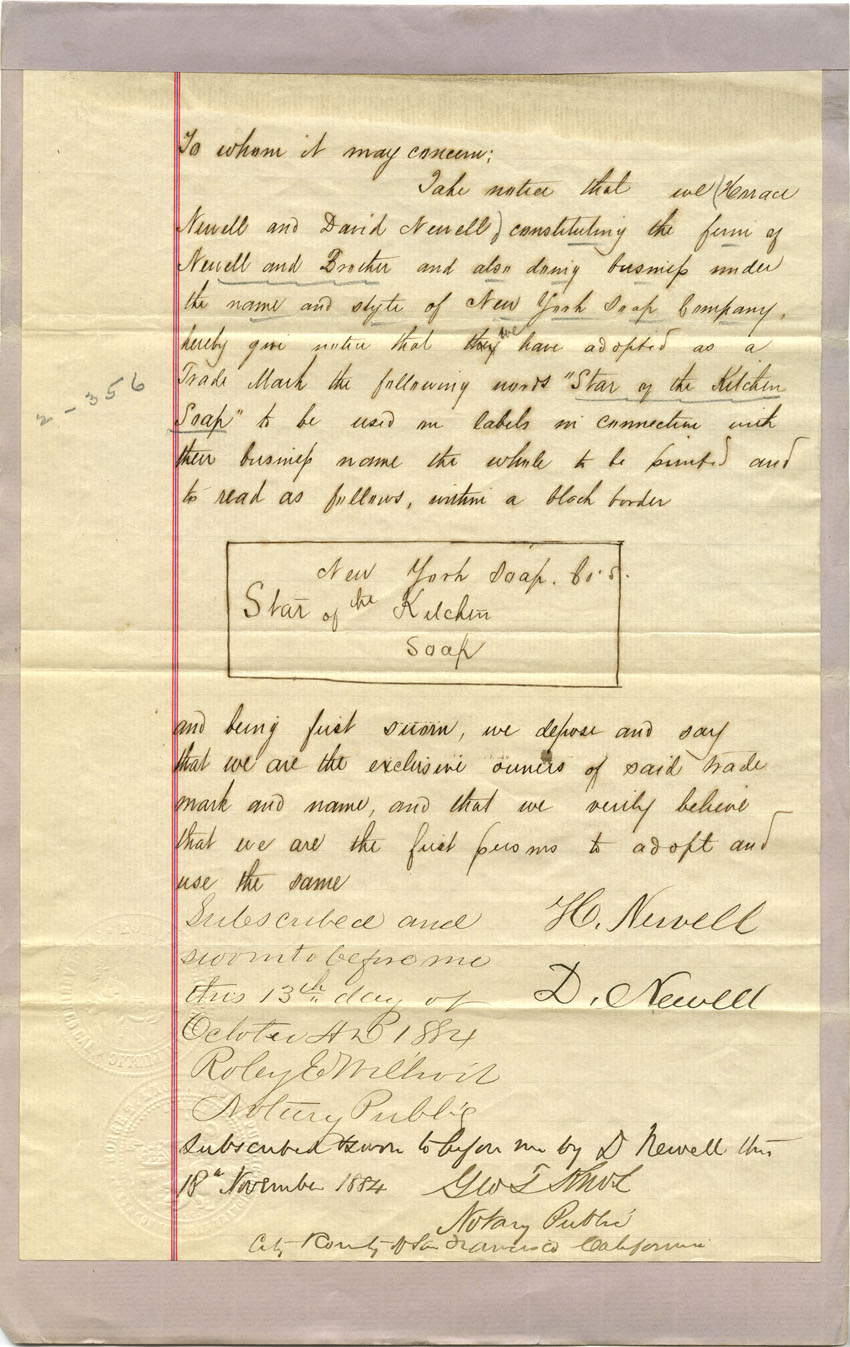 To whom it may concern;
Take notice that we (Horace
Newell and David Newell) constituting the firm of
Newell and Brother and also doing business under
the name and style of New York Soap Company,
hereby give notice that they we have adopted as a
Trade Mark the following words "Star of the Kitchen
Soap" to be used on labels in connection with
2-356
their business name the whole to be printed and
to read as follows, within a block border
New York Soap. Co.s.
Star of the Kitchen
Soap
and being first sworn, we depose and say
that we are the exclusive owners of said trade
mark and name, and that we verily believe
that we are the first persons to adopt and
use the same
Subscribed and
sworn to before me
this 13th day of
October AD 1884
H. Newell
D. Newell
Notary Public
Subscribed & sworn to before me by D Newell this
18th November 1884 Geo T
Notary Public
City & County of San Francisco California